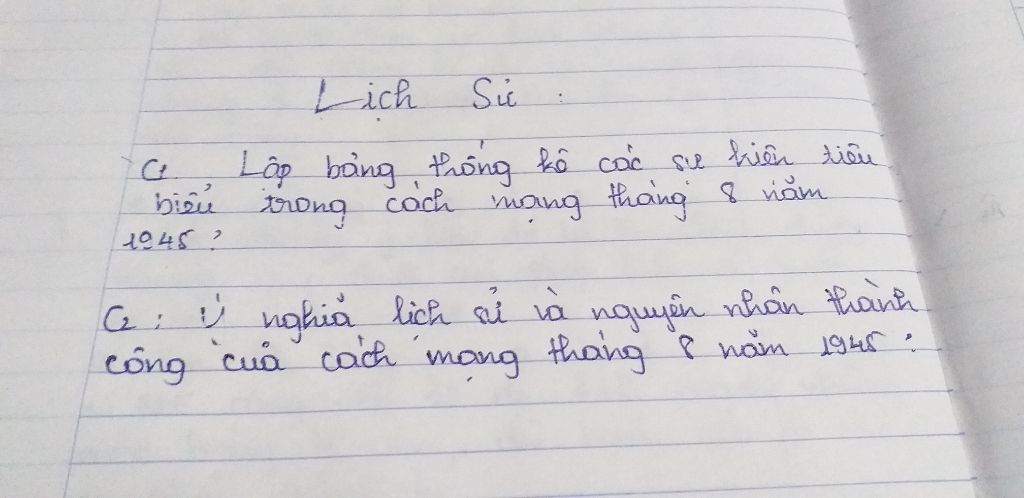 Lịch Sử :
C1. Lập bảng thống kê các sự kiện tiêu
biểu trong cách mạng tháng 8 năm
1945 ?
C2 : Ý nghĩa lịch sử và nguyên nhân thành
công của cách mạng tháng 8 năm 1945 ?